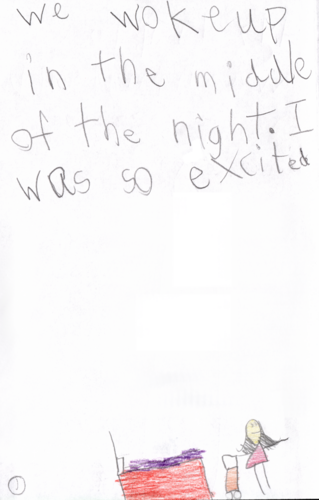 we wokeup
in the middle
of the night. I
was so excited